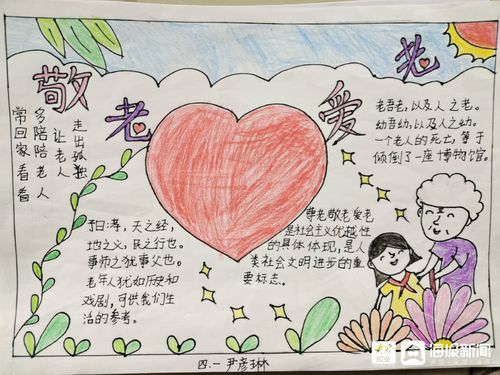 敬老爱老
常回家看看
多陪陪老人
让老人
走出孤独
老吾老,以及人之老。
幼吾幼,以及人之幼。
一个老人的死亡,等于
倾倒了一座博物馆。
子曰:孝,天之经,
地之义,民之行也。
事师之犹事父也。
老年人犹如历史和
戏剧,可供我们生
活的参考。
尊老敬老爱老
是社会主义优越性
的具体体现,是人
类社会文明进步的重
要标志。
四.一尹彦琳
海报新闻